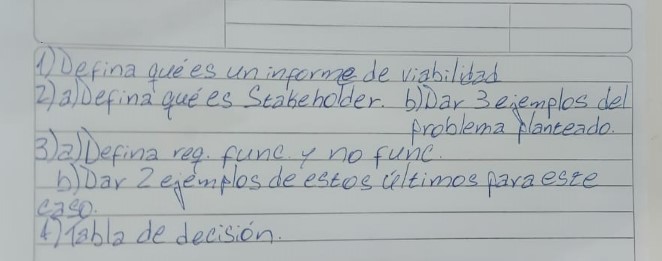 1) Defina qué es un informe de viabilidad
2) a) Defina qué es Stakeholder. b) Dar 3 ejemplos del
problema planteado.
3) a) Defina req. func. y no func.
b) Dar 2 ejemplos de estos últimos para este
caso.
4) Tabla de decisión.